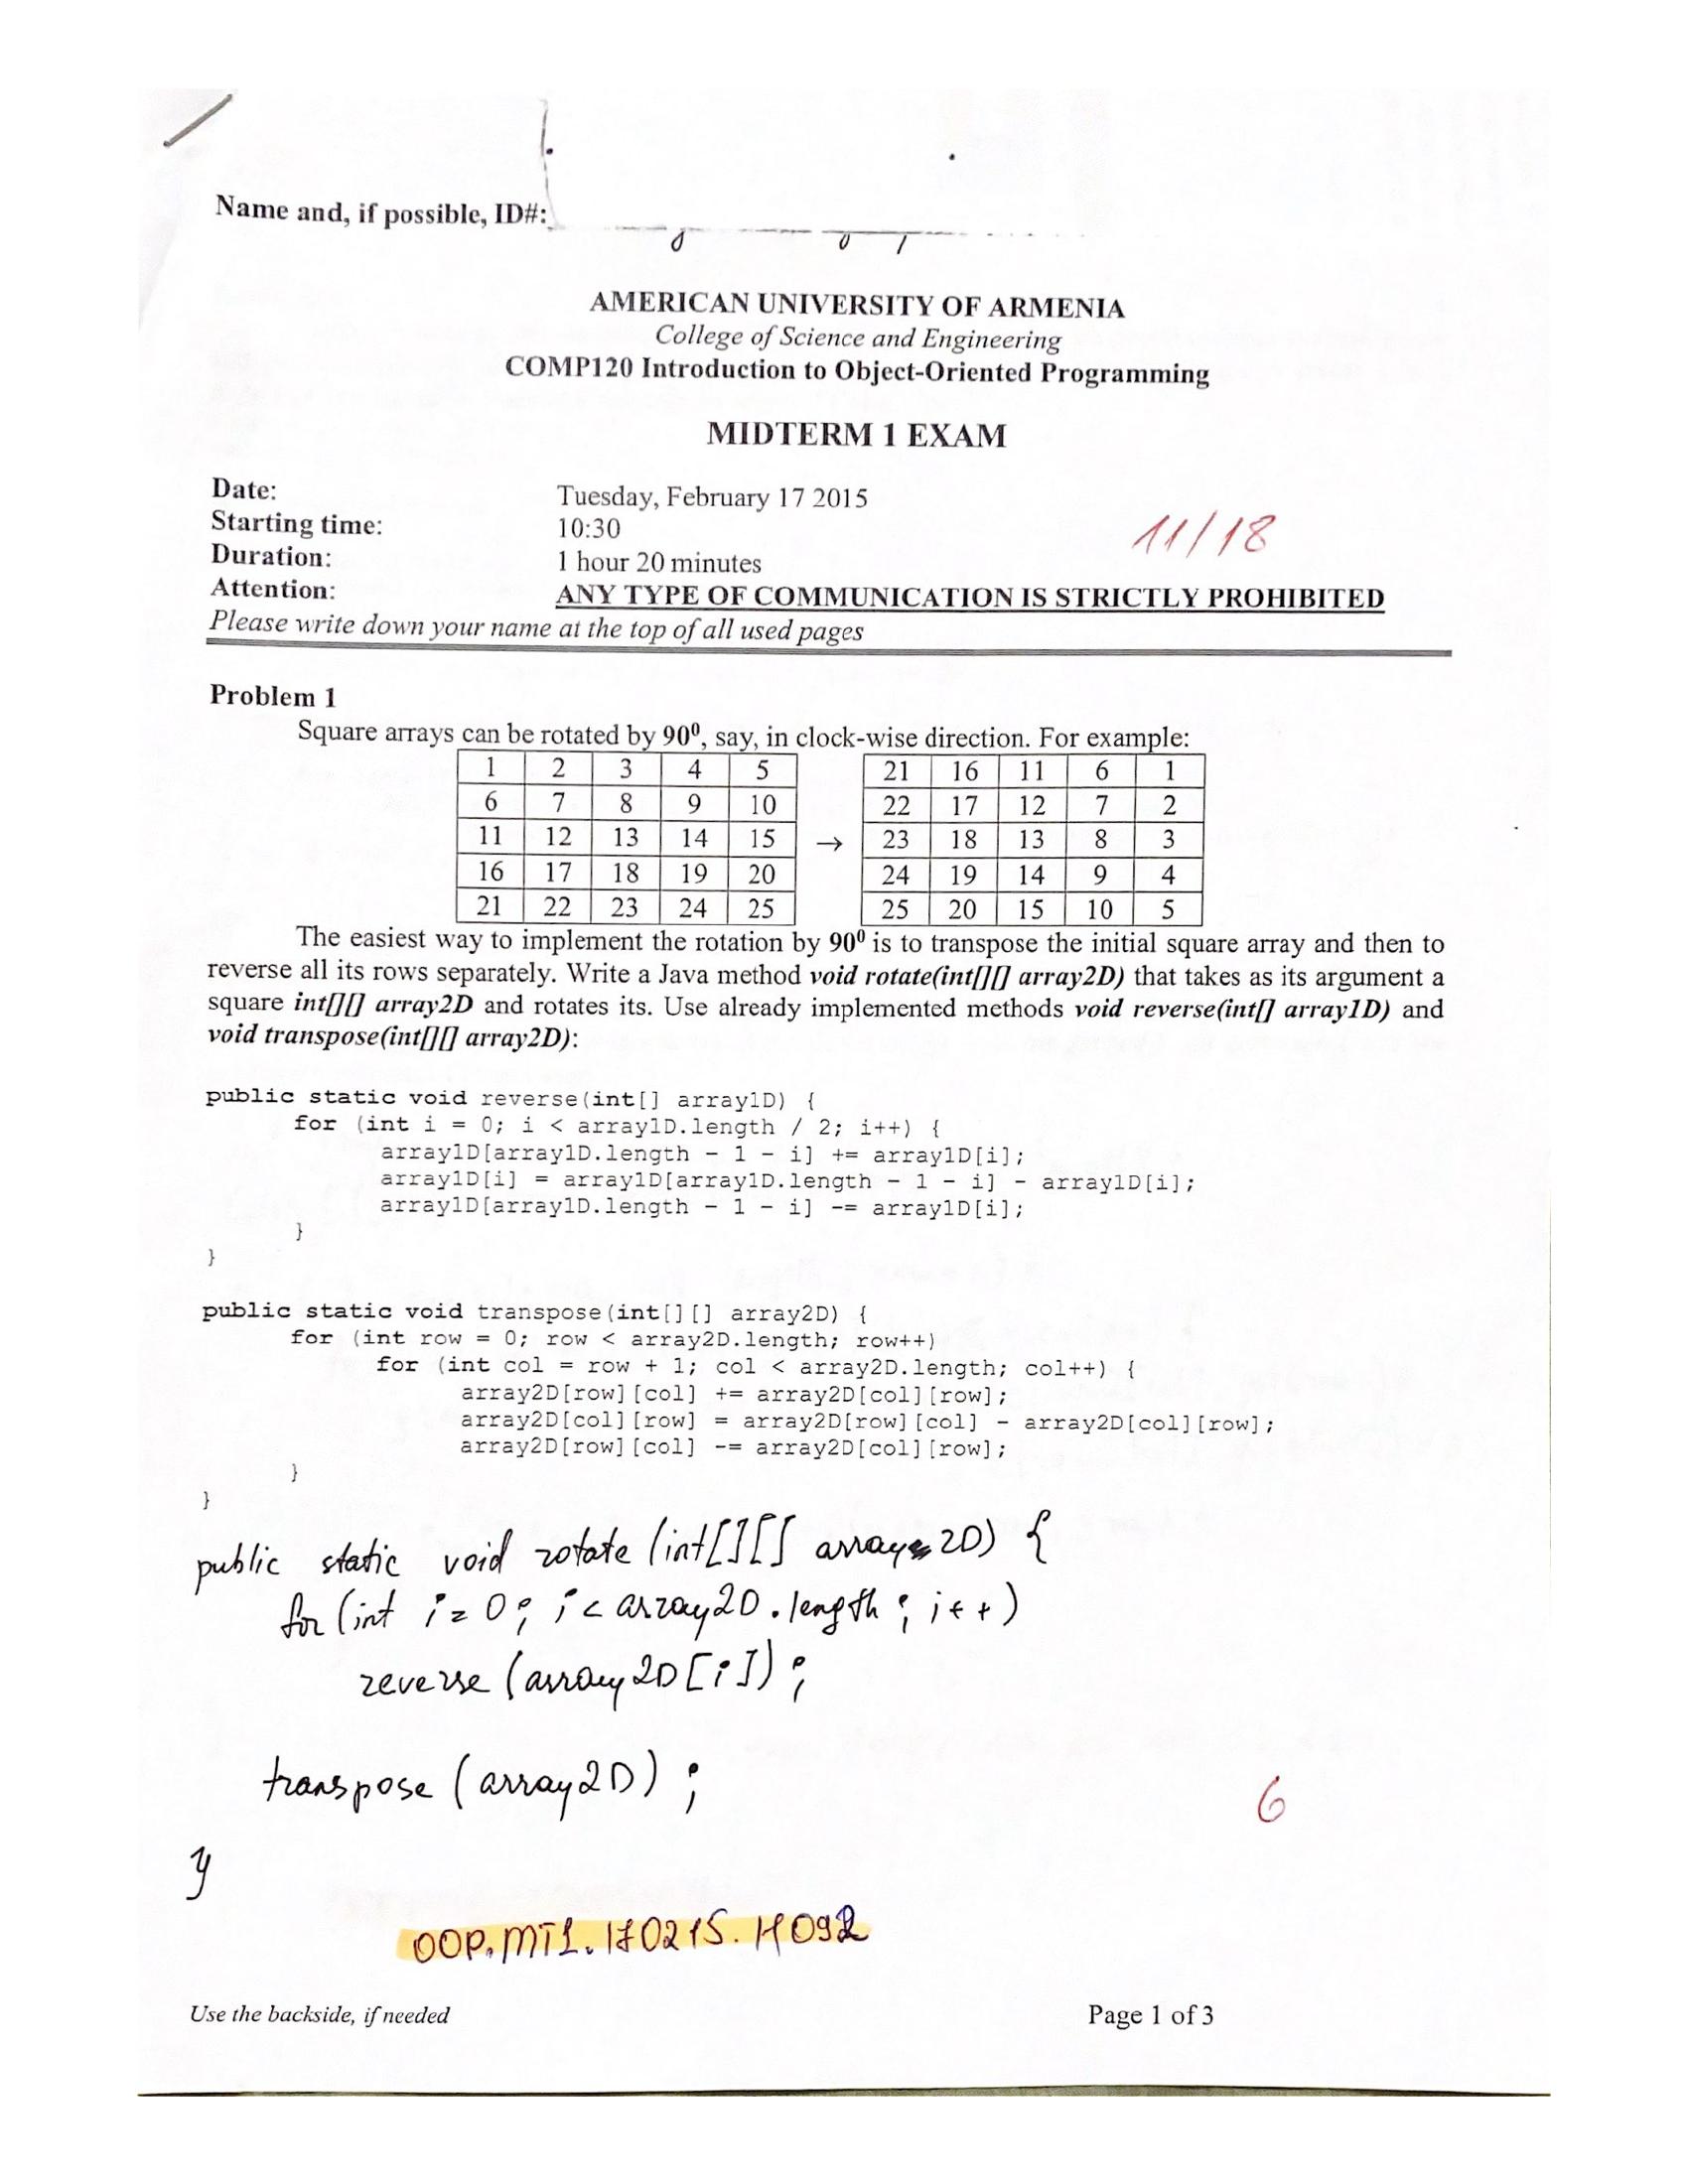 Name and, if possible, ID#:
AMERICAN UNIVERSITY OF ARMENIA
College of Science and Engineering
COMP120 Introduction to Object-Oriented Programming
MIDTERM 1 EXAM
Date: Tuesday, February 17 2015
Starting time: 10:30
11/18
Duration: 1 hour 20 minutes
Attention: ANY TYPE OF COMMUNICATION IS STRICTLY PROHIBITED
Please write down your name at the top of all used pages
Problem 1
Square arrays can be rotated by 90⁰, say, in clock-wise direction. For example:
1 2 3 4 5 21 16 11 6 1
6 7 8 9 10 22 17 12 7 2
11 12 13 14 15 → 23 18 13 8 3
16 17 18 19 20 24 19 14 9 4
21 22 23 24 25 25 20 15 10 5
The easiest way to implement the rotation by 90⁰ is to transpose the initial square array and then to
reverse all its rows separately. Write a Java method void rotate(int[][] array2D) that takes as its argument a
square int[][] array2D and rotates its. Use already implemented methods void reverse(int[] array1D) and
void transpose(int[][] array2D):
public static void reverse(int[] array1D) {
for (int i = 0; i < array1D.length / 2; i++) {
array1D[array1D.length - 1 - i] += array1D[i];
array1D[i] = array1D[array1D.length - 1 - i] - array1D[i];
array1D[array1D.length - 1 - i] -= array1D[i];
}
}
public static void transpose(int[][] array2D) {
for (int row = 0; row < array2D.length; row++)
for (int col = row + 1; col < array2D.length; col++) {
array2D[row][col] += array2D[col][row];
array2D[col][row] = array2D[row][col] - array2D[col][row];
array2D[row][col] -= array2D[col][row];
}
}
public static void rotate (int[][] array2D) {
for (int i = 0; i < array2D.length; i++)
reverse (array2D[i]);
transpose (array2D);
6
}
OOP.MT1.170215.H092
Use the backside, if needed Page 1 of 3